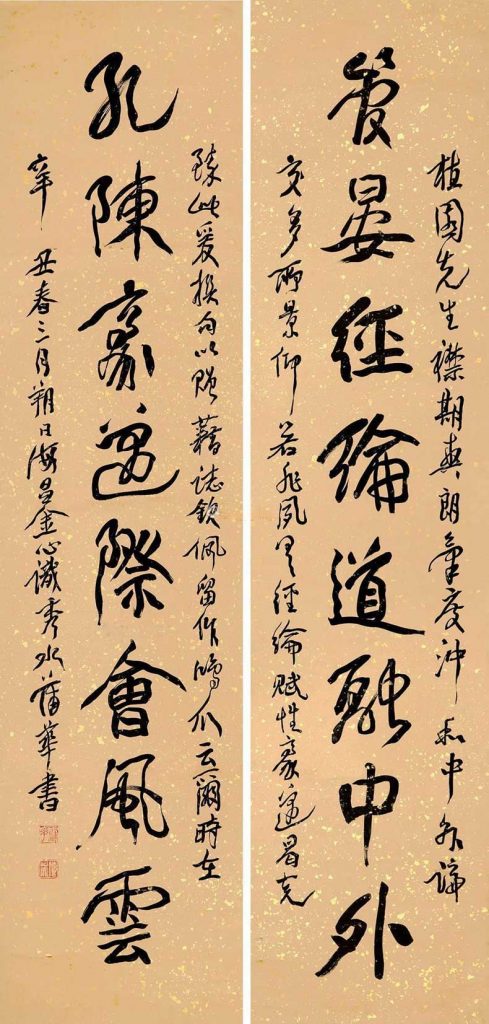 植園先生襟期爽朗氣度沖和中外締
管晏經綸道融中外
交多所景仰若非夙具經綸賦性豪邁曷克
臻此爰撰句以贈藉誌欽佩留作鴻爪云爾時在
孔陳豪邁際會風雲
辛丑春三月朔日海昌金心識秀水蒲華書